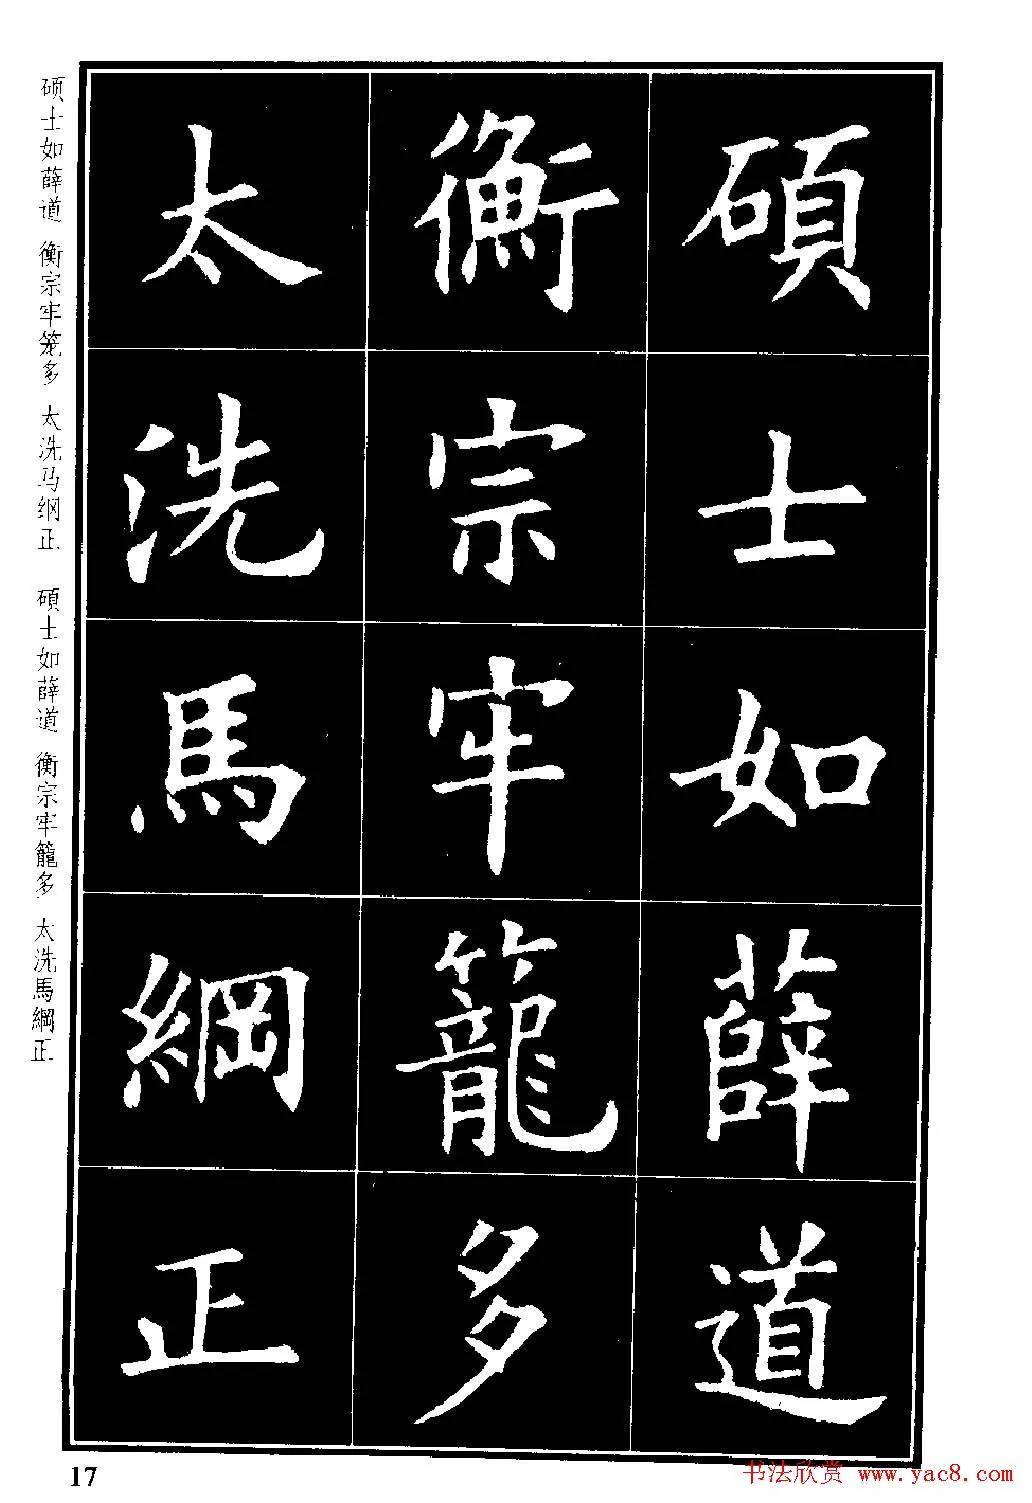 碩士如薛道
衡宗牢籠多
太洗馬綱正
硕士如薛道 衡宗牢笼多 太洗马纲正
碩士如薛道 衡宗牢籠多 太洗馬綱正
17
书法欣赏 www.yac8.com